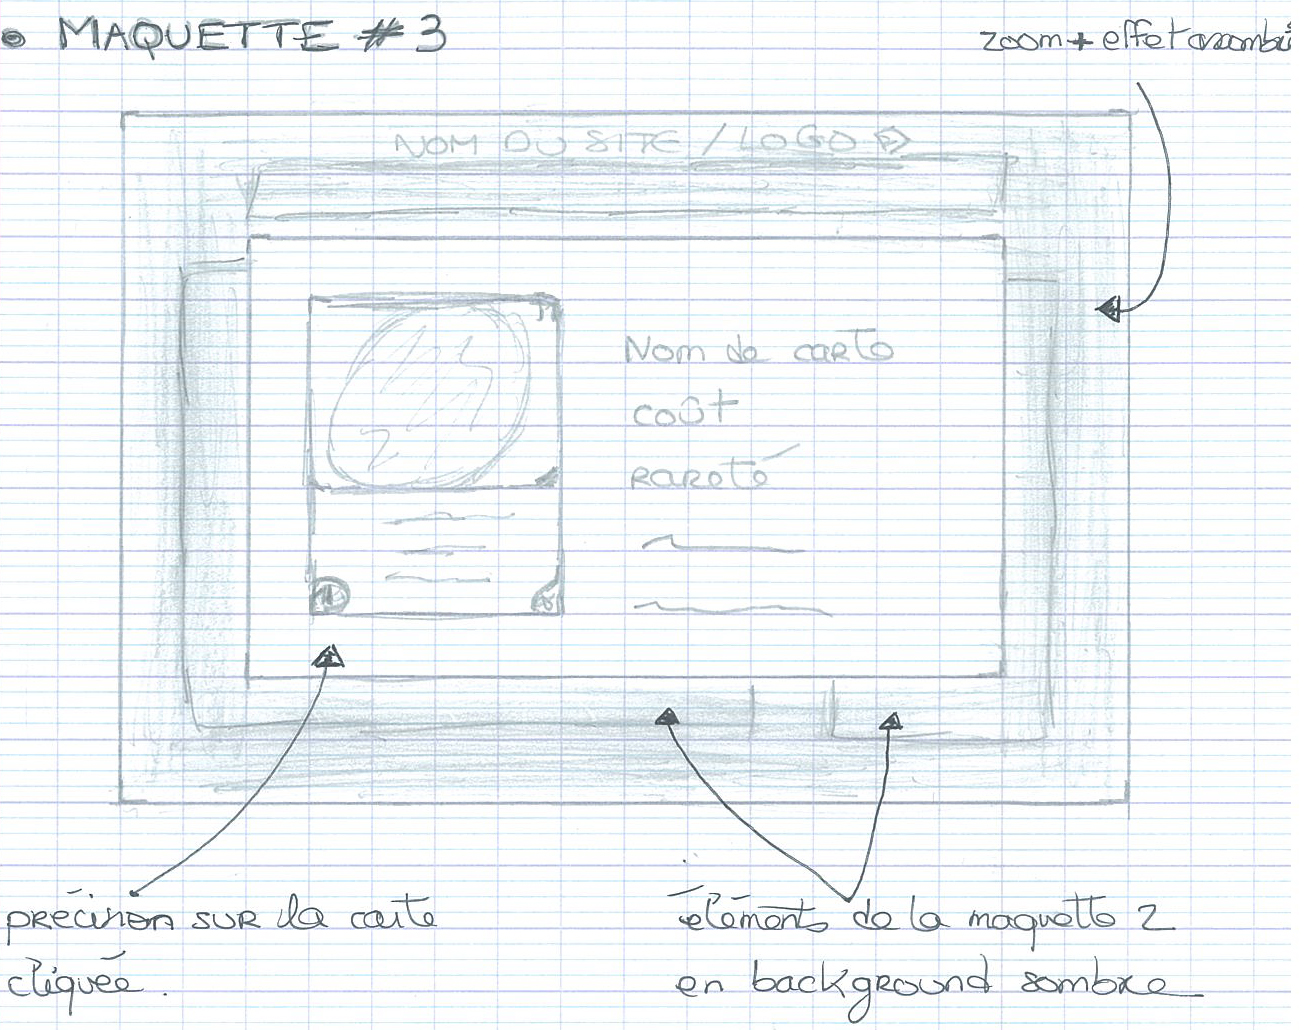 • MAQUETTE #3
zoom + effet assombri
NOM DU SITE / LOGO
Nom de carte
coût
rareté
précision sur la carte
cliquée.
éléments de la maquette 2
en background sombre